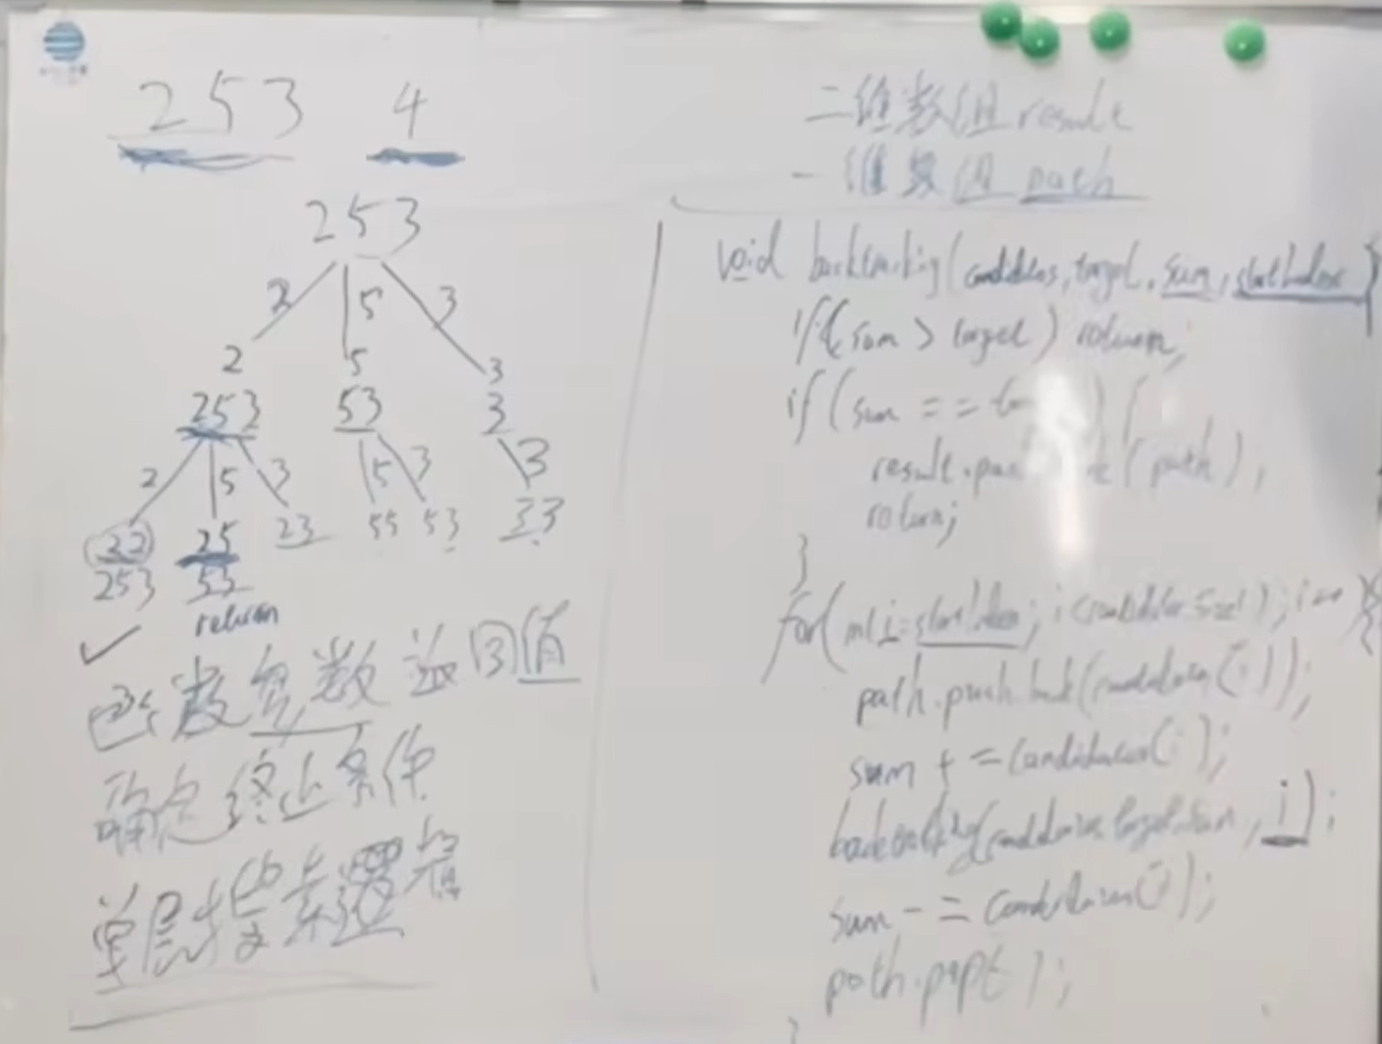 2 5 3 4
2 5 3
2 5 3
2 5 3
2 5 3 5 3 3
2 5 3 5 3 3
22 25 23 55 53 33
253 53
return
函数参数 返回值
确定终止条件
单层搜索逻辑
二维数组 result
一维数组 path
void backtracking(candidates, target, sum, startIndex){
if(sum > target) return;
if(sum == {
result.pu (path);
return;
}
for(int i=startIndex; i<candidates.size(); i++){
path.push_back(candidates[i]);
sum += candidates[i];
backtracking(candidates, target, sum, i);
sum -= candidates[i];
path.pop();
}